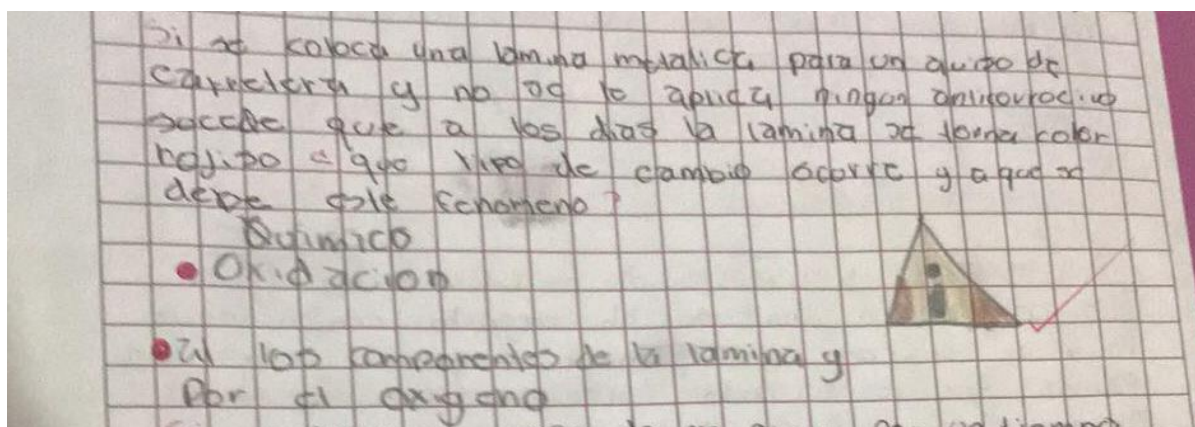 Si se coloca una lamina metalica para un auiso de
carretera y no se le aplica ningun anticorrocivo
succde que a los dias la lamina se torna color
rojiso ¿que tipo de cambio ocorre y a que se
debe este fenomeno?
Quimico
Oxidacion
los componentes de la lamina y
Por el oxygeno